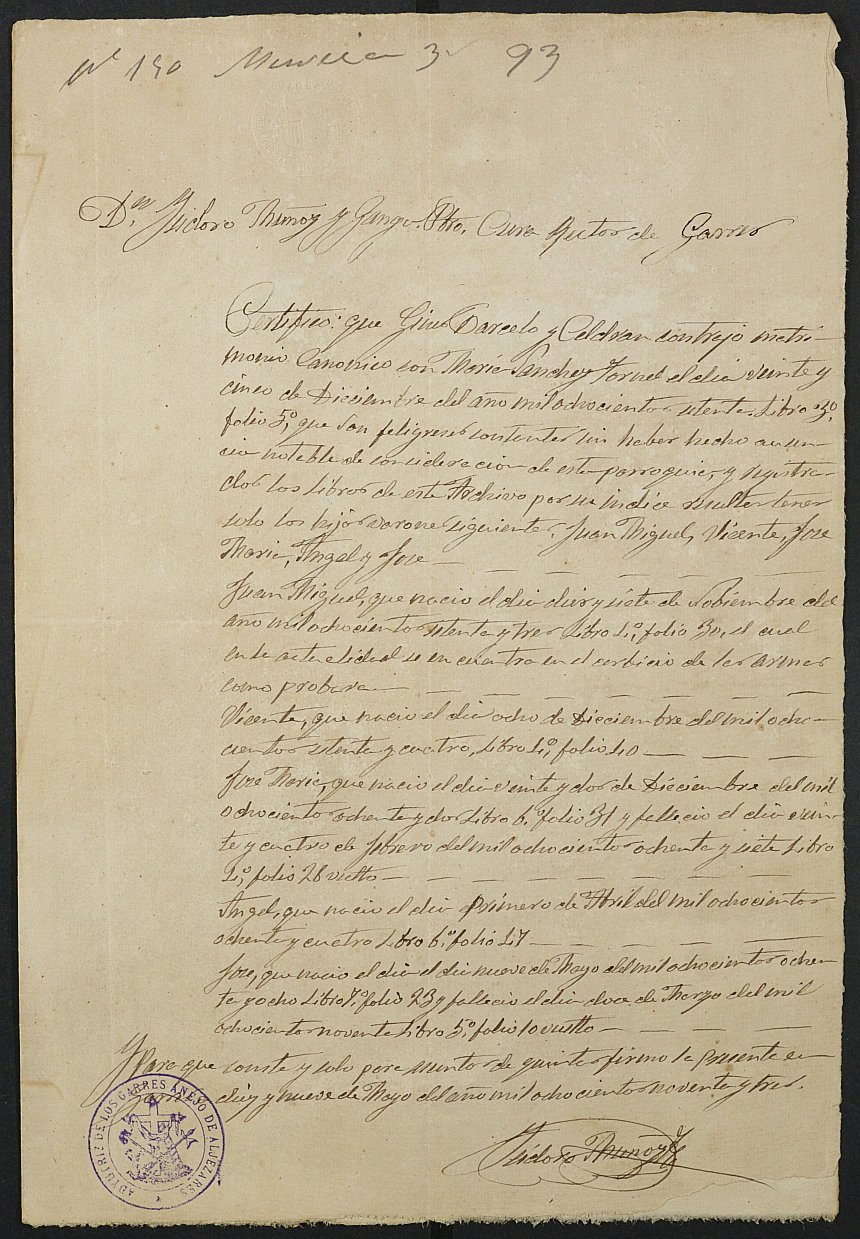 nº 150 Murcia 3 93
Dn. Isidoro Muñoz y Pbro. Cura Rector de Garres
Certifico: que Gines Barcelo y Celdran contrajo matri-
monio Canonico con Maria Sanchez Tornel el dia veinte y
cinco de Dicciembre del año mil ochocientos setenta. Libro 3º,
folio 5º, que son feligreses sin haber hecho ausen-
cia notable de consideracion de esta parroquia, y registra-
dos los libros de este Archivo por su indice resulta tener
solo los hijos varones siguientes. Juan Miguel, Vicente, Jose
Maria, Angel y Jose
Juan Miguel, que nacio el dia diez y siete de Nobiembre del
año mil ochocientos setenta y tres Libro 4º, folio 30, el cual
en la actualidad se encuentra en el serbicio de las armas
como probara
Vicente, que nacio el dia ocho de Dicciembre del mil ocho-
cientos setenta y cuatro, Libro 4º, folio 40
Jose Maria, que nacio el dia veinte y dos de Dicciembre del mil
ochocientos ochenta y dos Libro 6º folio 31 y fallecio el dia vein-
te y cuatro de febrero del mil ochocientos ochenta y siete Libro
4º, folio 28 vuelto
Angel, que nacio el dia primero de Abril del mil ochocientos
ochenta y cuatro Libro 6º folio 47
Jose, que nacio el dia el dia nueve de Mayo del mil ochocientos ochen-
ta y ocho Libro 7º, folio 23 y fallecio el dia doce de Marzo del mil
ochocientos noventa Libro 5º, folio 10 vuelto
Y para que conste y solo para de quintas firmo la presente en
diez y nueve de Mayo del año mil ochocientos noventa y tres.
Isidoro Muñoz
ADYUTRIZ DE LOS GARRES ANEJO DE ALJEZARES